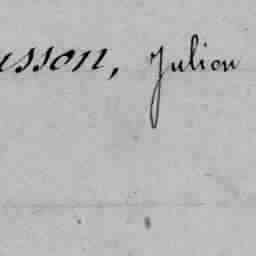 usson, Julien